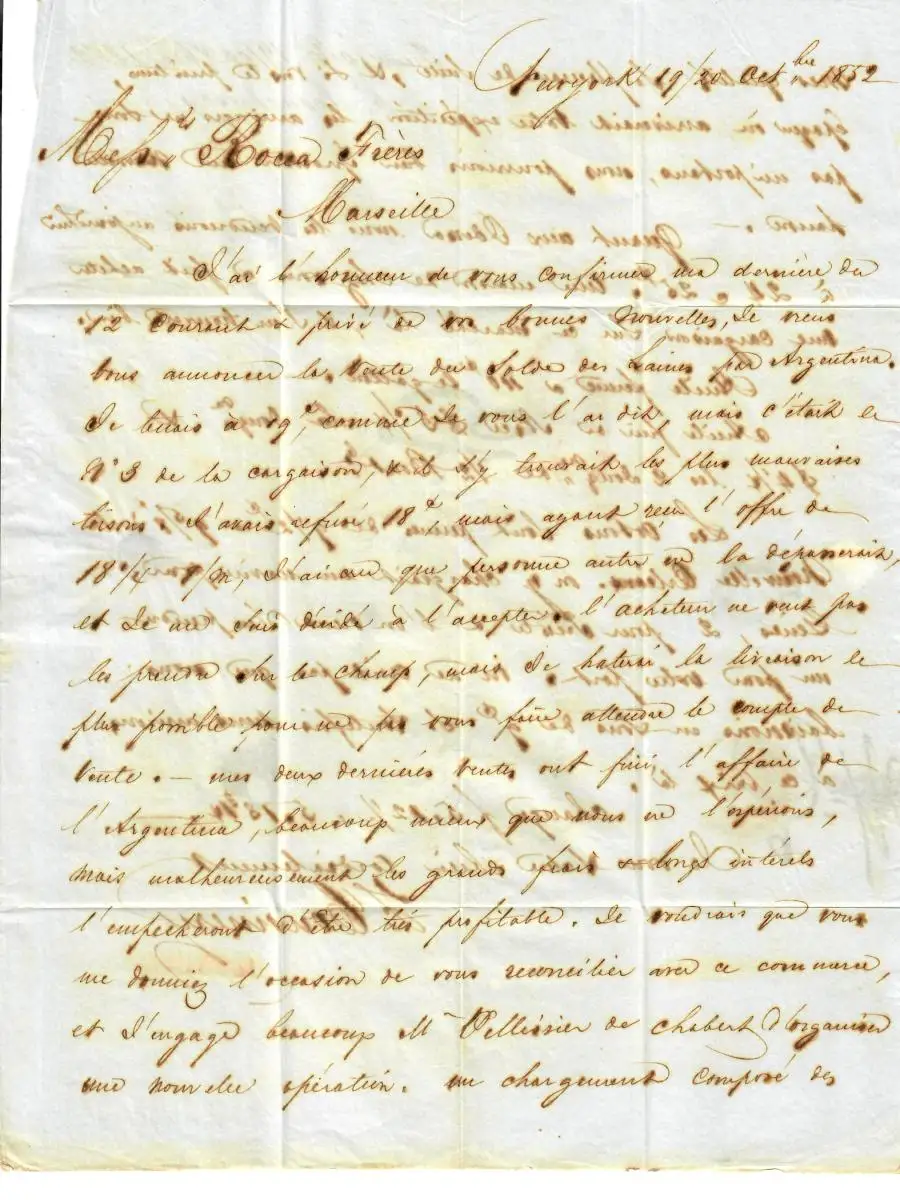 Newyork 19/20 Octbre 1852
Messrs Rocca Frères
Marseille
J'ai l'honneur de vous confirmer ma dernière du
12 courant & privé de vos bonnes nouvelles, Je viens
vous annoncer la vente du Solde des Laines par Argentina.
Je tenais à 19c, comme Je vous l'ai dit, mais c'était le
N°3 de la cargaison, & il s'y trouvait les plus mauvaises
toisons. J'avais refusé 18c, mais ayant reçu l'offre de
18 J'ai cru que personne autre ne la dépasserait,
et Je me suis décidé à l'accepter. l'acheteur ne veut pas
les prendre sur le champ, mais Je haterai la livraison le
plus possible pour ne pas vous faire attendre le compte de
vente. — mes deux dernières ventes ont fini l'affaire de
l'Argentina, beaucoup mieux que nous ne l'espérions,
mais malheureusement les grands frais & longs intérêts
l'empecheront d'être très profitable. Je voudrais que vous
me donniez l'occasion de vous reconcilier avec ce commerce,
et J'engage beaucoup Mr Pellissier de Chabert d'organiser
une nouvelle opération. un chargement composé de